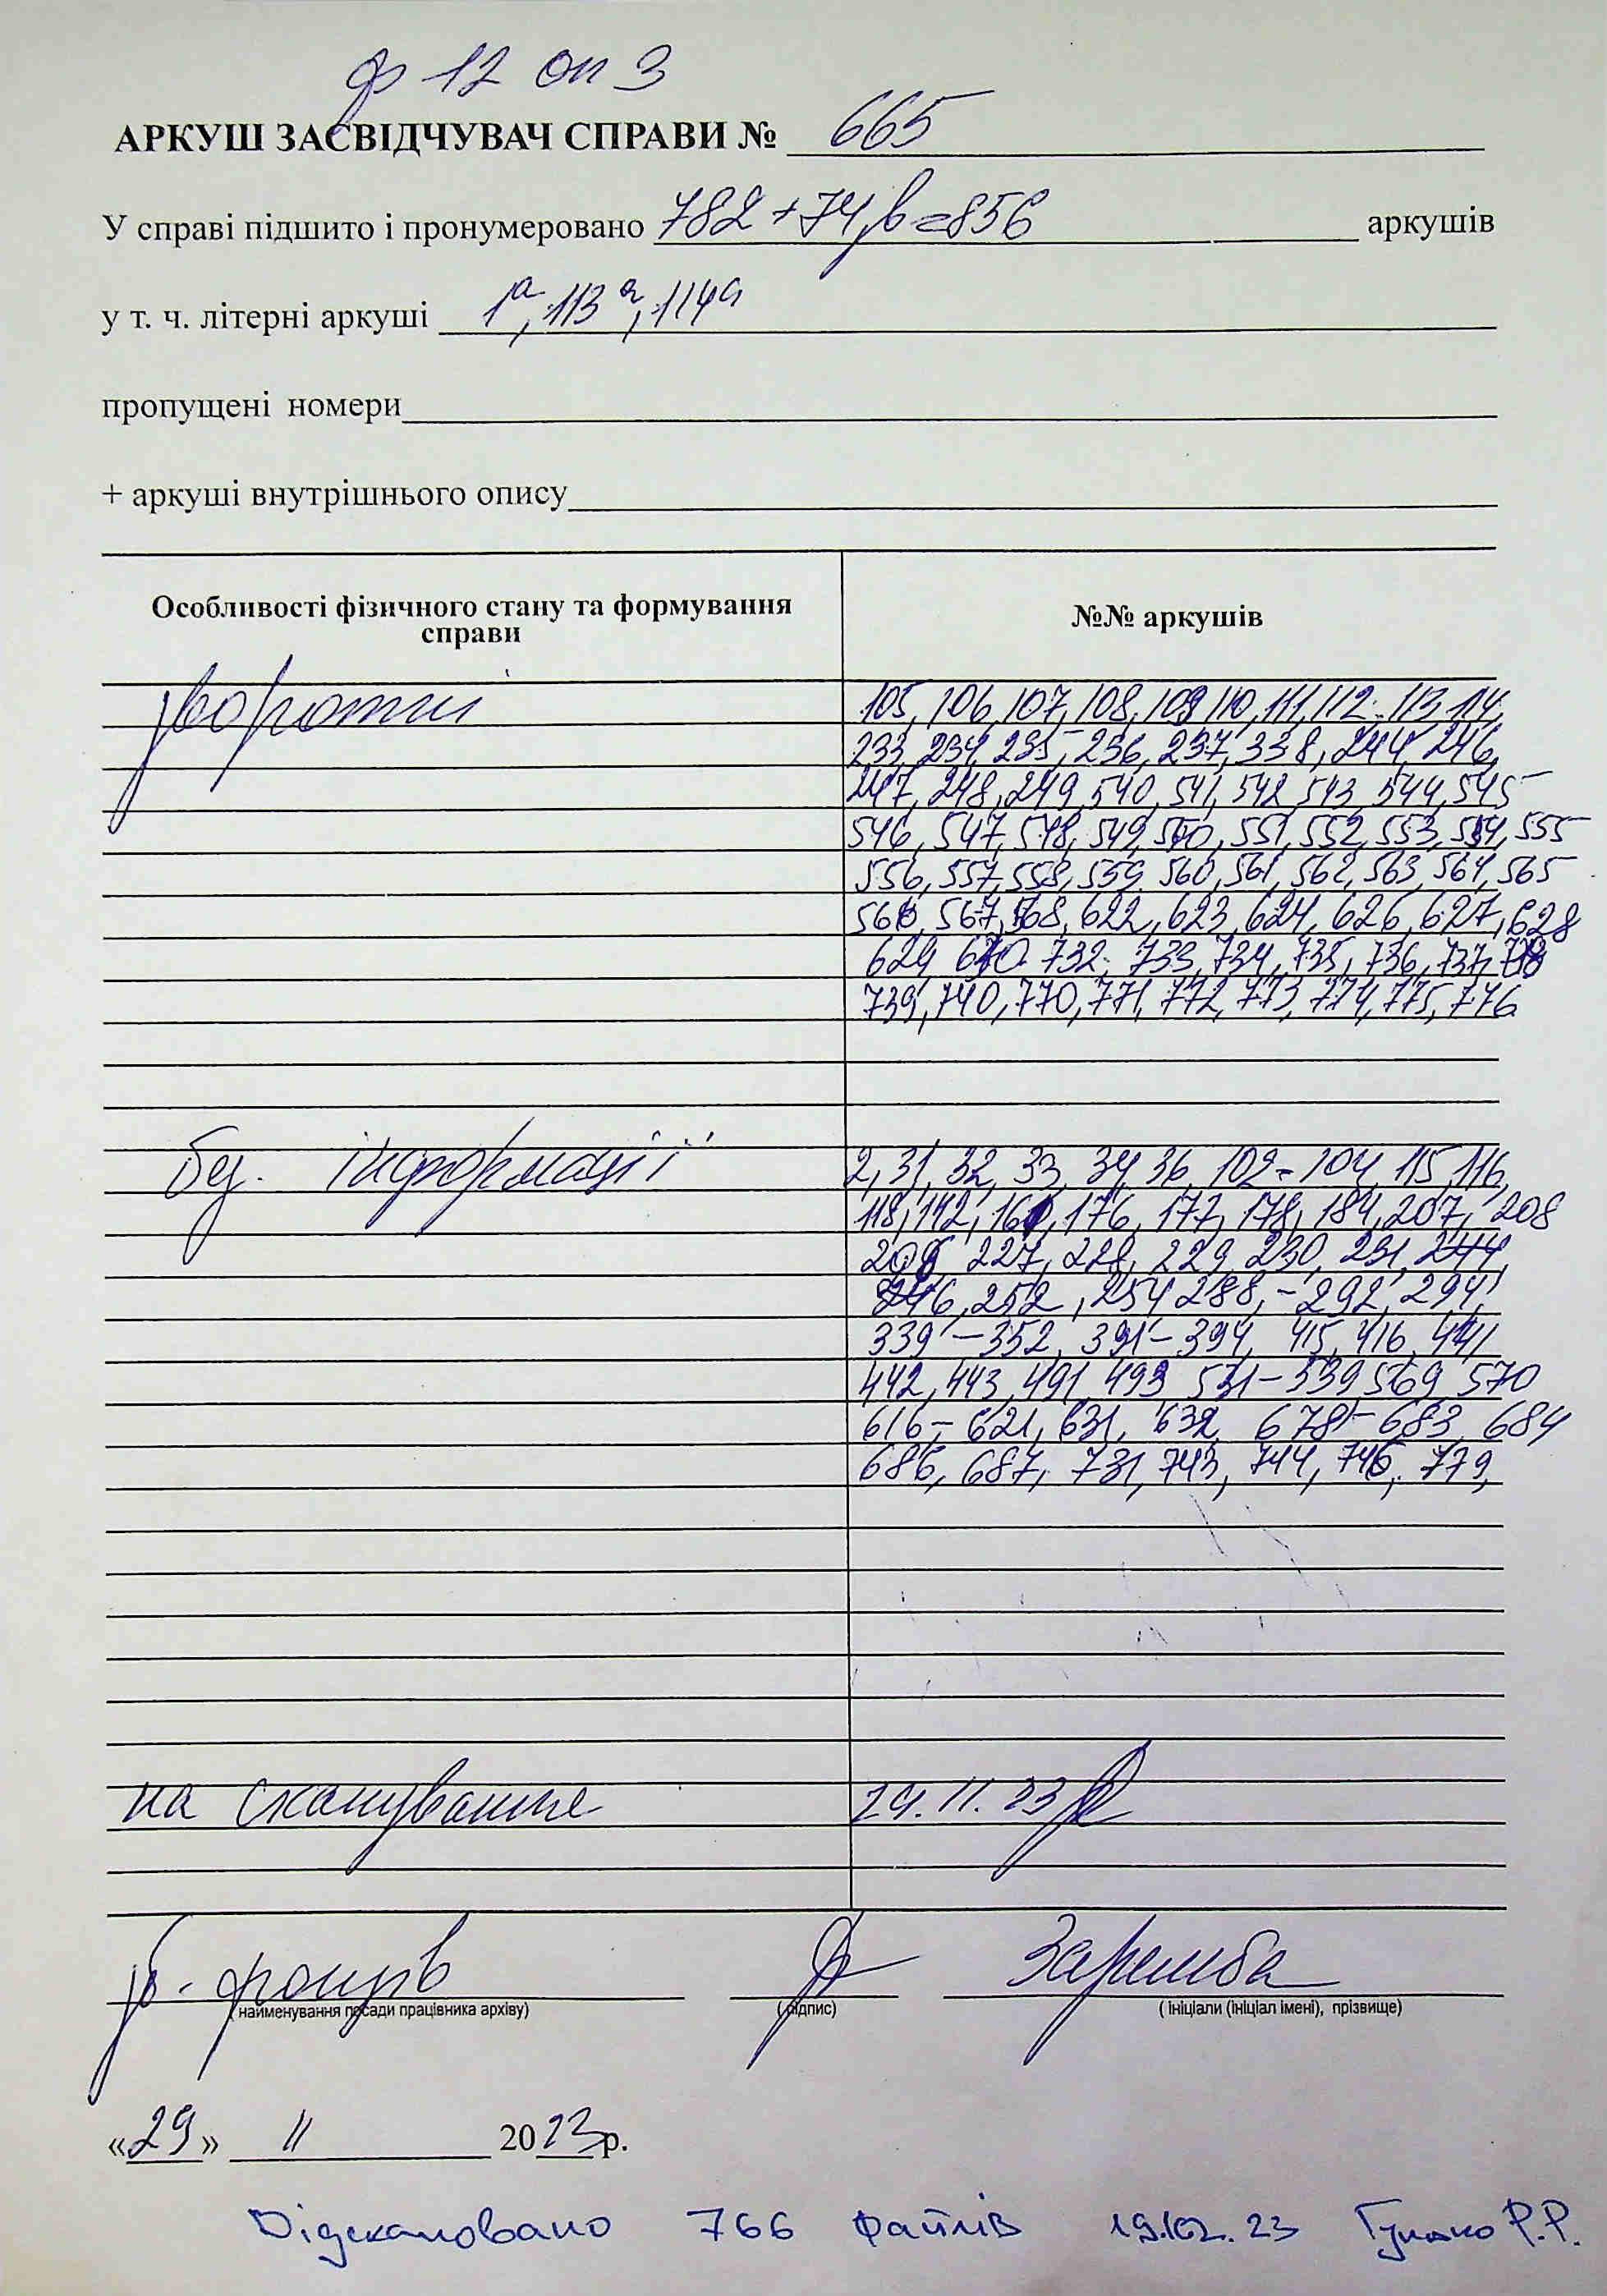 ф 12 оп 3
АРКУШ ЗАСВІДЧУВАЧ СПРАВИ № 665
У справі підшито і пронумеровано 782 + 74, в = 856 аркушів
у т. ч. літерні аркуші 1а, 113а, 114а
пропущені номери
+ аркуші внутрішнього опису
Особливості фізичного стану та формування справи
№№ аркушів
звороти 105, 106, 107, 108, 109, 110, 111, 112, 113, 114,
233, 234, 235, 236, 237, 338, 244, 246,
247, 248, 249, 540, 541, 542, 543, 544, 545
546, 547, 548, 549, 550, 551, 552, 553, 554, 555
556, 557, 558, 559, 560, 561, 562, 563, 564, 565
566, 567, 568, 622, 623, 624, 626, 627, 628
629, 630, 732, 733, 734, 735, 736, 737, 738
739, 740, 770, 771, 772, 773, 774, 775, 776
без. інформації 2, 31, 32, 33, 34, 36, 102-104, 115, 116,
118, 142, 161, 176, 177, 178, 184, 207, 208
209, 227, 228, 229, 230, 231, 244,
246, 252, 254, 288,-292, 294,
339-352, 391-394, 415, 416, 441
442, 443, 491, 493, 531-539, 569, 570
616-621, 631, 632, 678-683, 684
686, 687, 731, 743, 744, 746, 779,
на сканування 29.11.23
зб. фондів
Заремба
(найменування посади працівника архіву)
(підпис)
(ініціали (ініціал імені), прізвище)
«29» 11 2023р.
Відскановано 766 файлів 19.12.23 Р.Р.